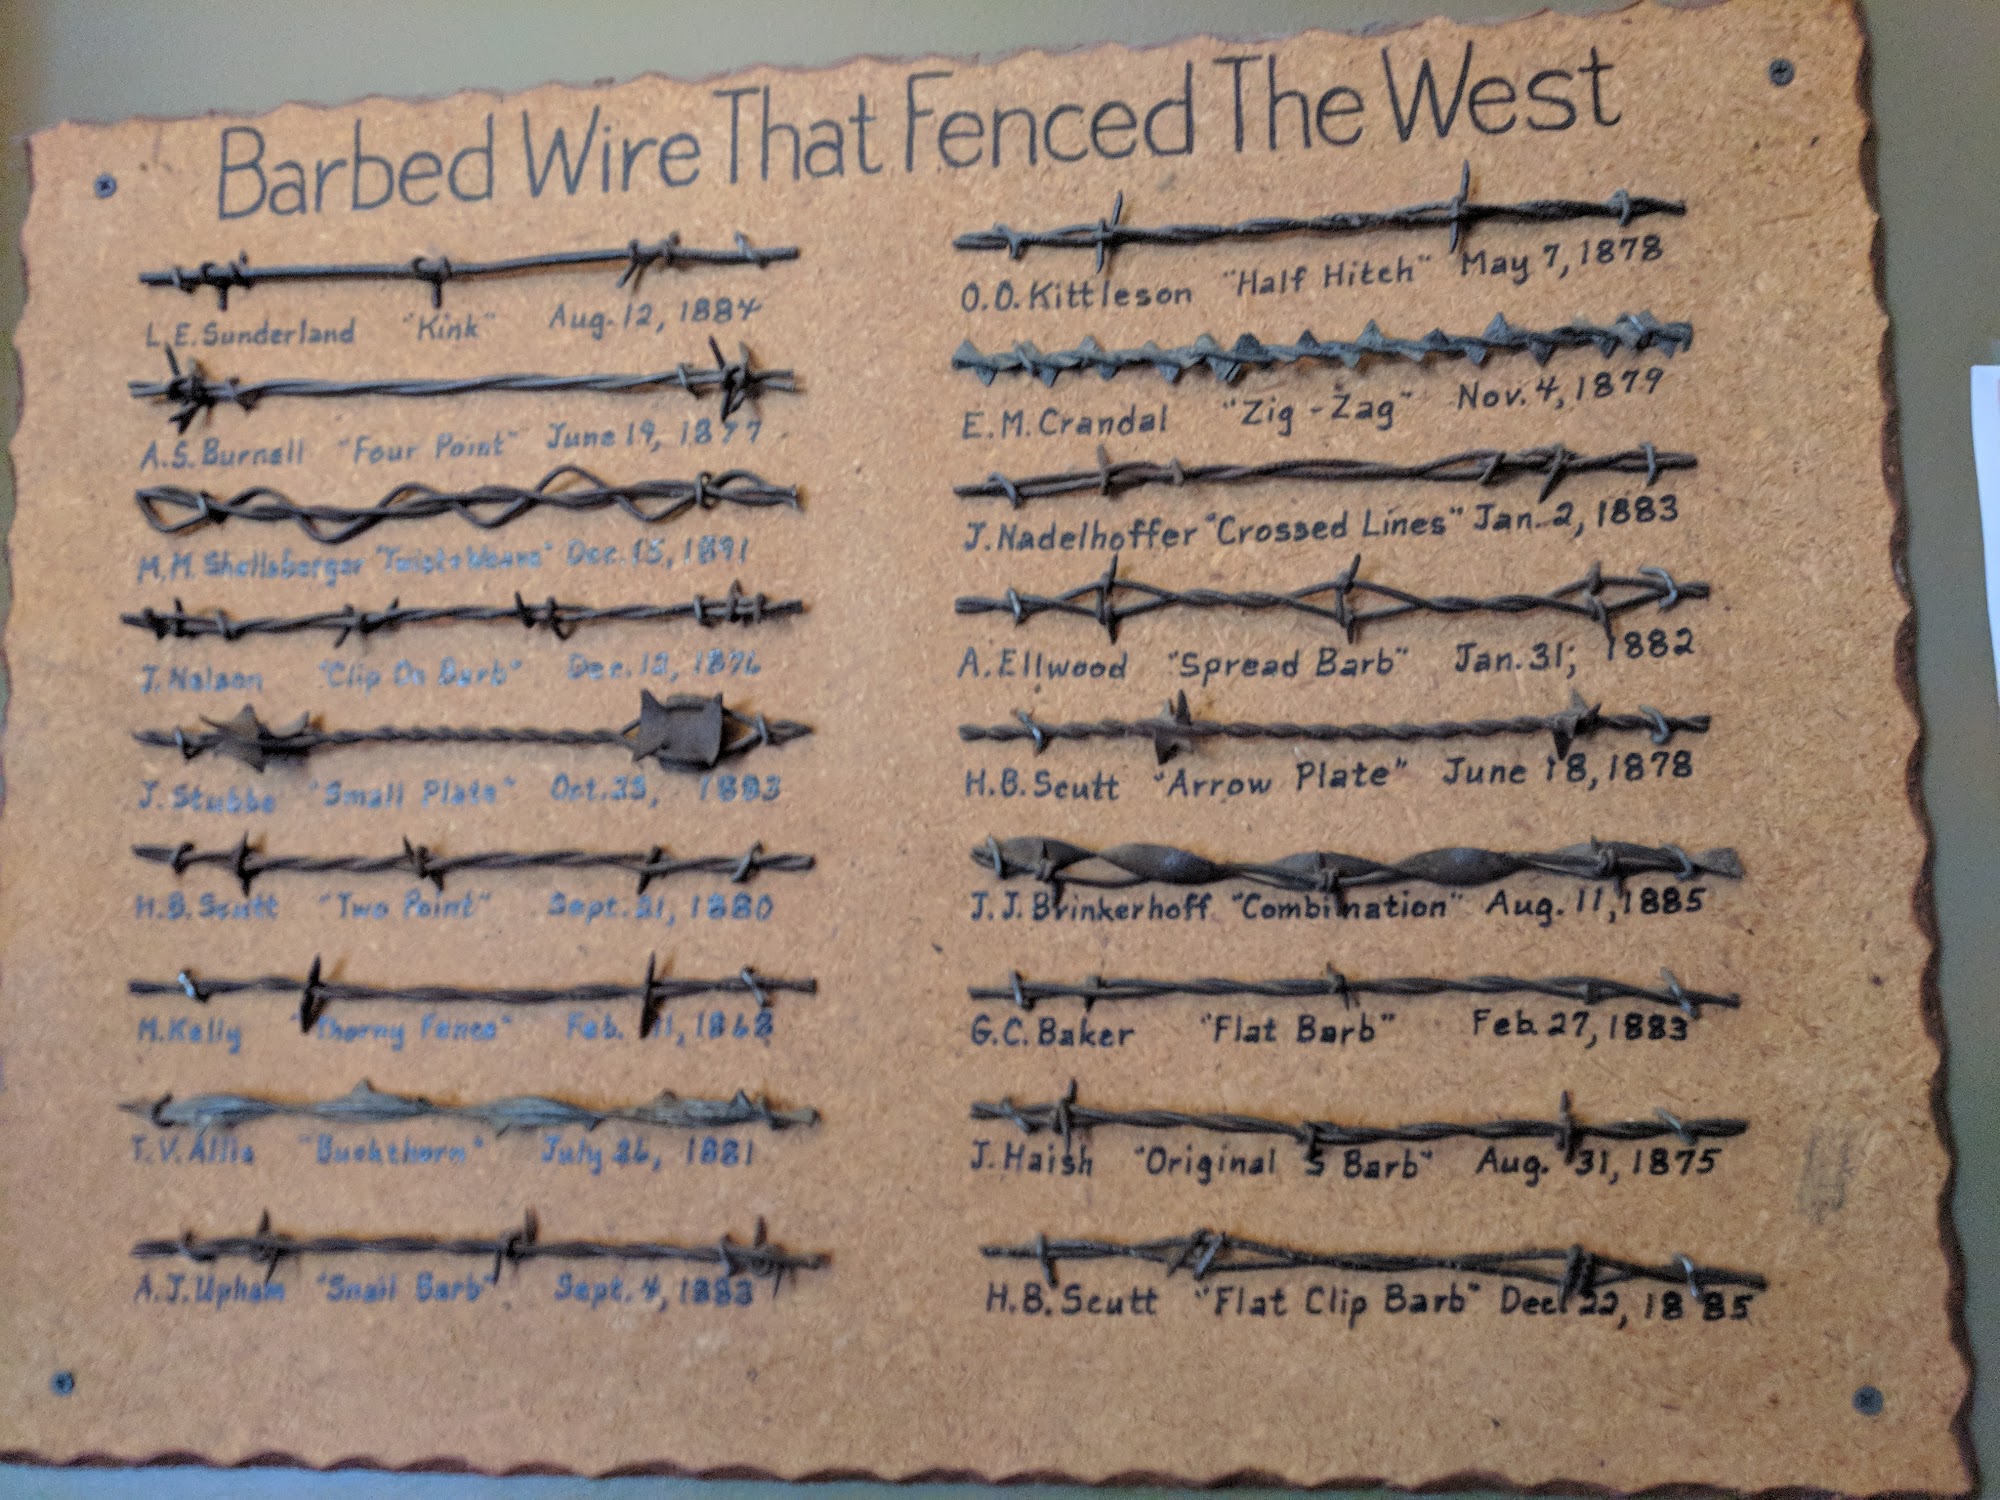 Barbed Wire That Fenced The West
L.E. Sunderland "Kink" Aug. 12, 1884
A.S. Burnell "Four Point" June 19, 1877
M.M. Shellaberger Dec. 15, 1891
J. Nelson "Clip On Barb" Dec. 1876
J. Stubbe "Small Plate" Oct. 1883
H.B. Scutt "Two Point" Sept. 21, 1880
M. Kelly "Thorny Fence" Feb. 11, 1868
T.V. Allis "Buckthorn" July 26, 1881
A.J. Upham "Snail Barb" Sept. 4, 1883
O.O. Kittleson "Half Hitch" May 7, 1878
E.M. Crandal "Zig-Zag" Nov. 4, 1879
J. Nadelhoffer "Crossed Lines" Jan. 2, 1883
A. Ellwood "Spread Barb" Jan. 31, 1882
H.B. Scutt "Arrow Plate" June 18, 1878
J.J. Brinkerhoff "Combination" Aug. 11, 1885
G.C. Baker "Flat Barb" Feb. 27, 1883
J. Haish "Original S Barb" Aug. 31, 1875
H.B. Scutt "Flat Clip Barb" Dec. 22, 1885